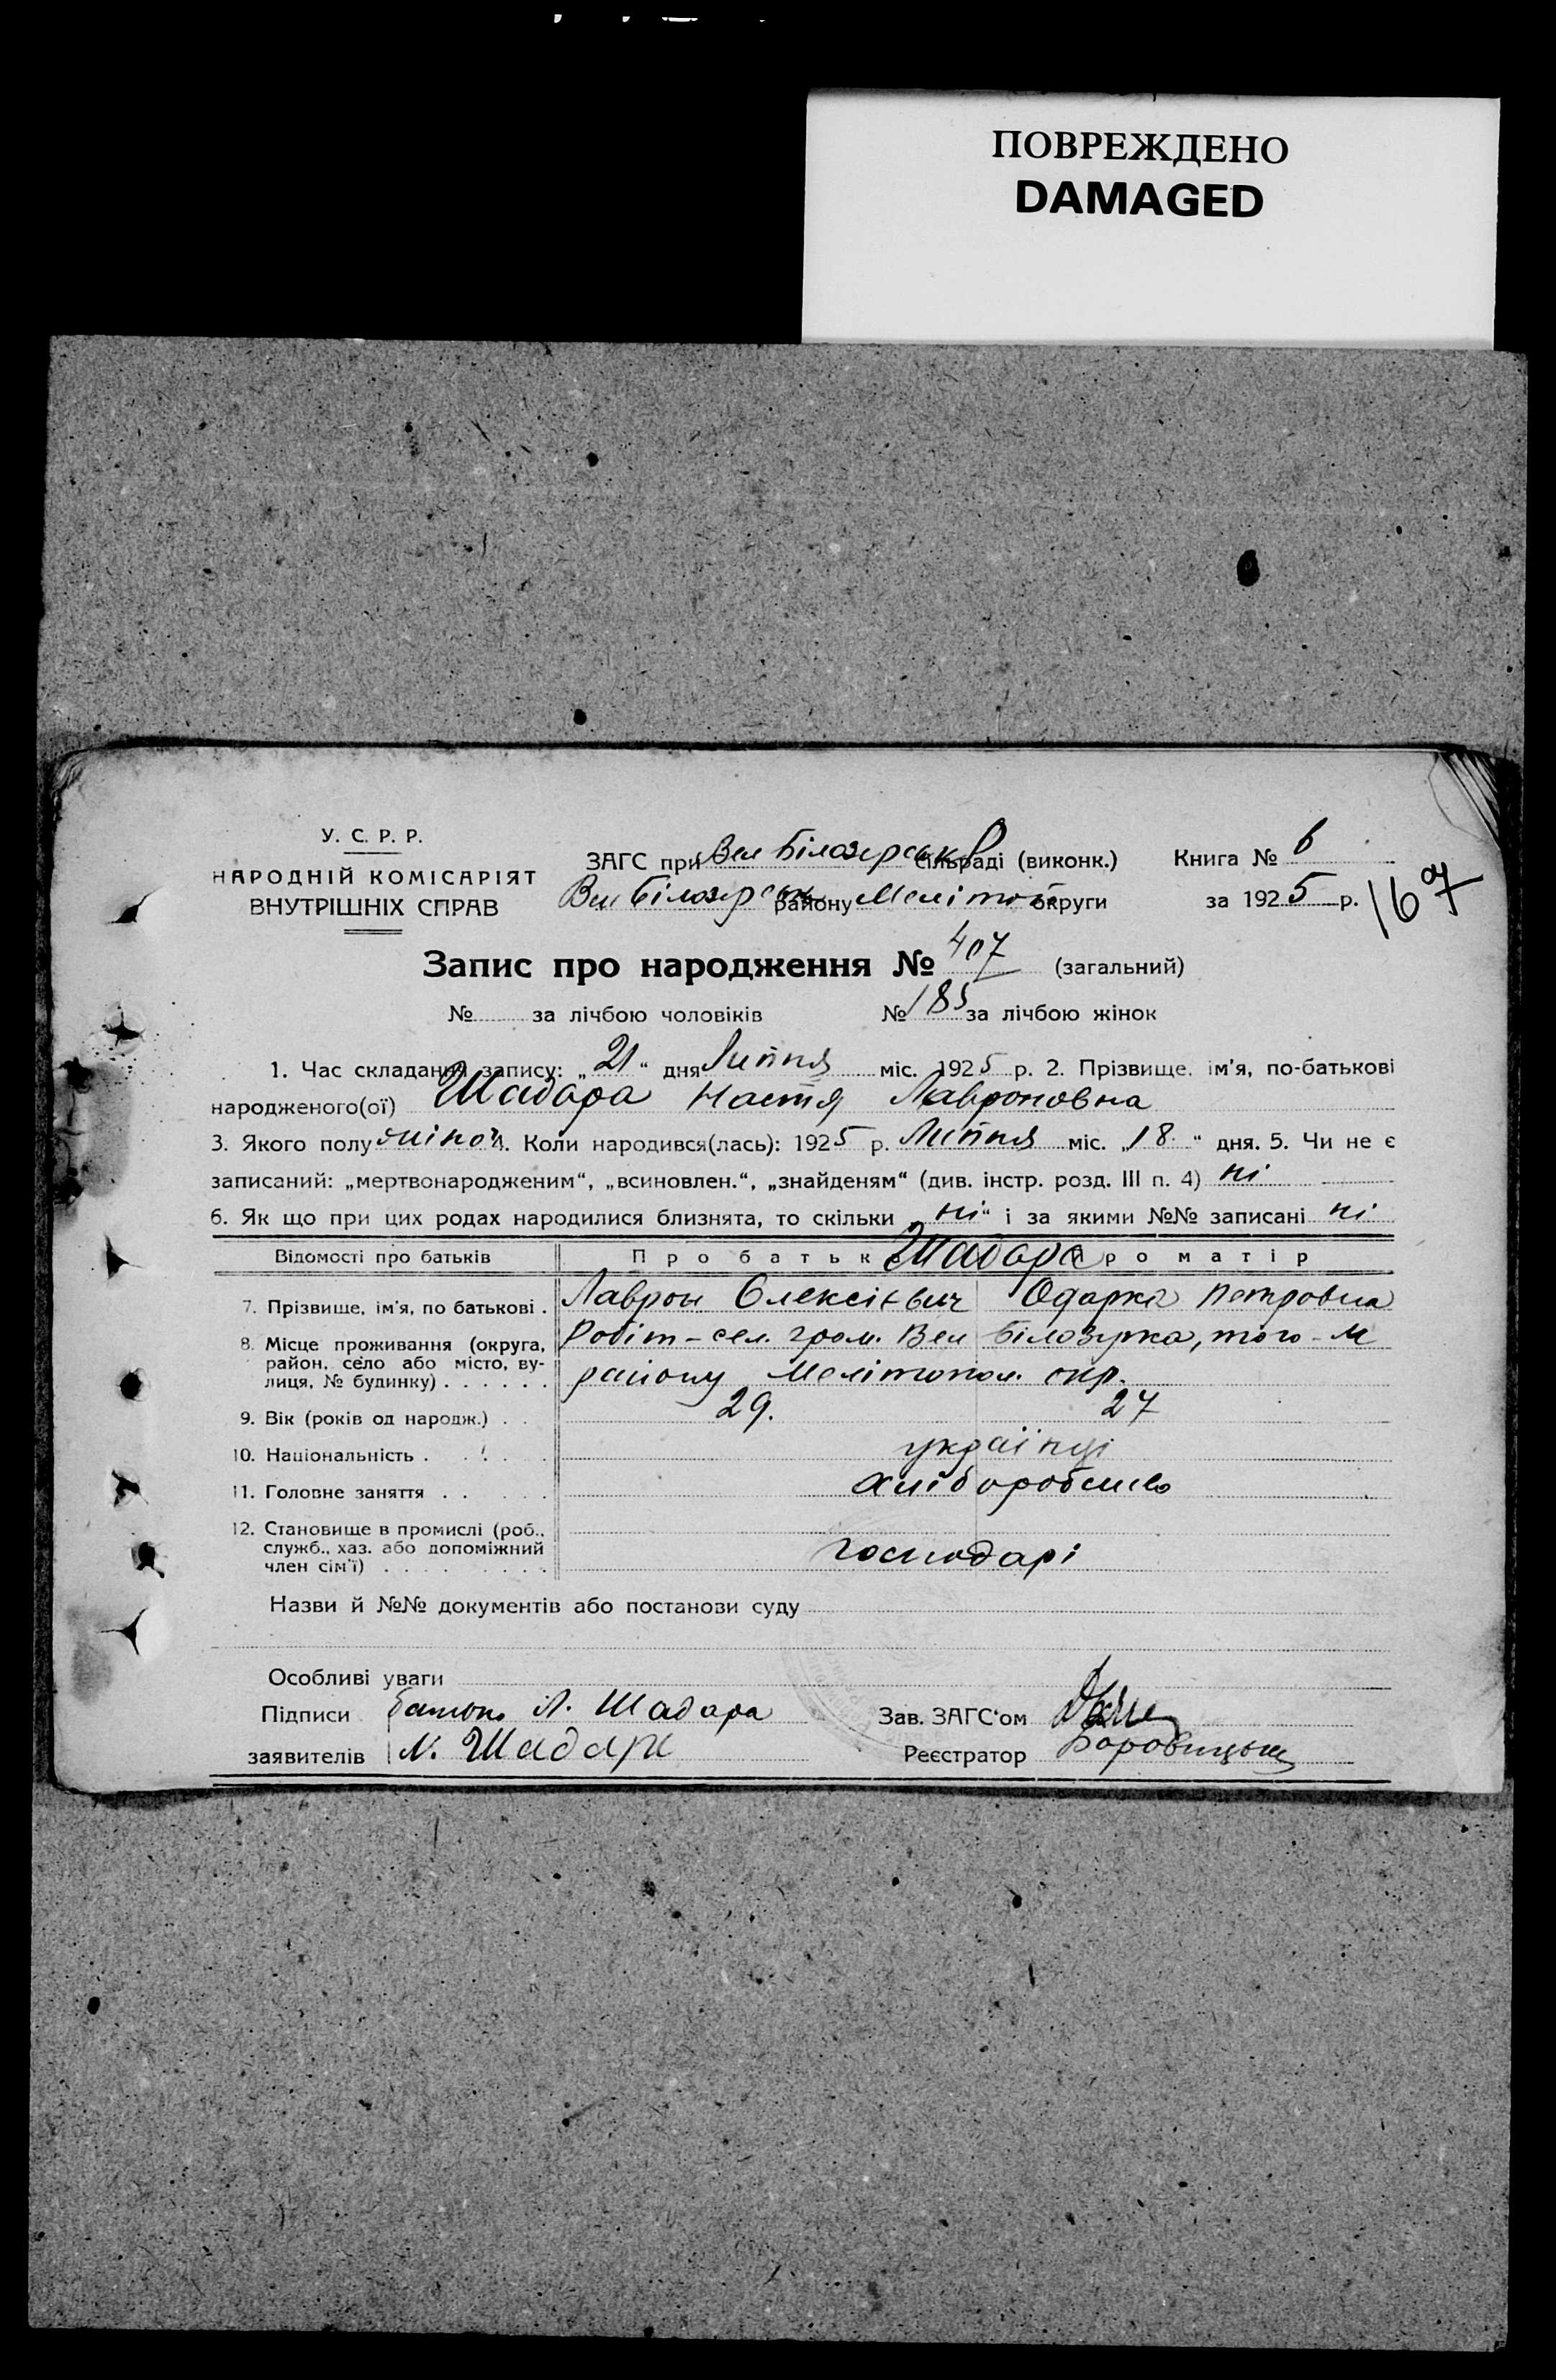 ПОВРЕЖДЕНО
DAMAGED
У. С. Р. Р.
НАРОДНІЙ КОМІСАРІЯТ
ВНУТРІШНІХ СПРАВ
ЗАГС при Вел Білозерськ сільраді (виконк.)
Вел Білозерськ району Мелітоп округи
Книга № 6
за 1925 р.
167
Запис про народження № 407 (загальний)
№ за лічбою чоловіків № 185 за лічбою жінок
1. Час складання запису: „21“ дня Липня міс. 1925 р. 2. Прізвище, ім'я, по-батькові
народженого(ої) Шадара Настя Лавроновна
3. Якого полу жіноч 4. Коли народився(лась): 1925 р. Липня міс. „18“ дня. 5. Чи не є
записаний: „мертвонародженим“, „всиновлен.“, „знайденям“ (див. інстр. розд. III п. 4) ні
6. Як що при цих родах народилися близнята, то скільки „ні“ і за якими №№ записані ні
Відомості про батьків Про батьк Шадара Про матір
7. Прізвище, ім'я, по батькові . Лаврон Олексієвич Одарка Петровна
8. Місце проживання (округа, район, село або місто, вулиця, № будинку) . . . . . . Робіт-сел. гром. Вел Білозерка, того-ж
району Мелітопол. окр.
9. Вік (років од народж.) . . 29. 27
10. Національність . . . . українці
11. Головне заняття . . . . . хліборобство
12. Становище в промислі (роб., служб., хаз. або допоміжний член сім'ї) . . . . . . . . . господарі
Назви й №№ документів або постанови суду
Особливі уваги
Підписи батько Л. Шадара
заявителів Шадара
Зав. ЗАГС'ом
Реєстратор